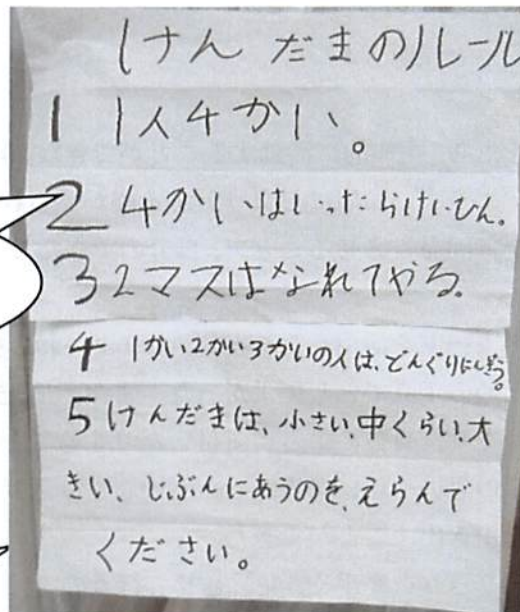 けんだまのルール
1 1人4かい。
2 4かいはいったらけいひん。
3 2マスはなれてやる。
4 1かい2かい3かいの人は、どんぐりに
5 けんだまは、小さい、中くらい、大
きい、じぶんにあうのを、えらんで
ください。